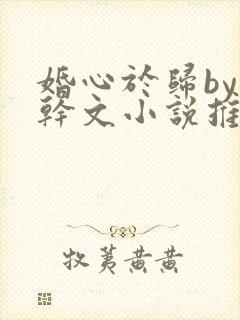 婚心於歸by
幹文小說推
牧荑黃黃